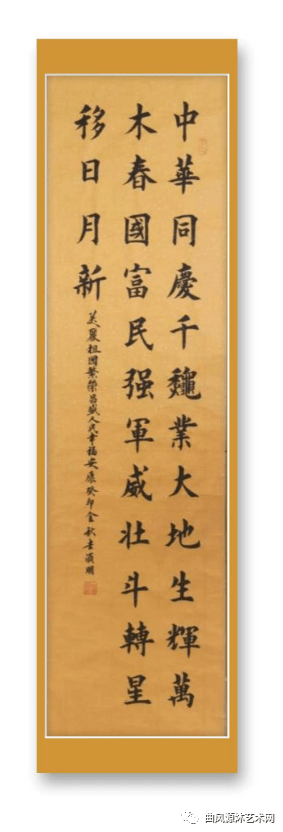 中華同慶千龝業大地生輝萬
木春國富民强軍威壯斗轉星
移日月新
美麗祖國繁榮昌盛人民幸福安康癸卯金秋
曲风源沐艺术网